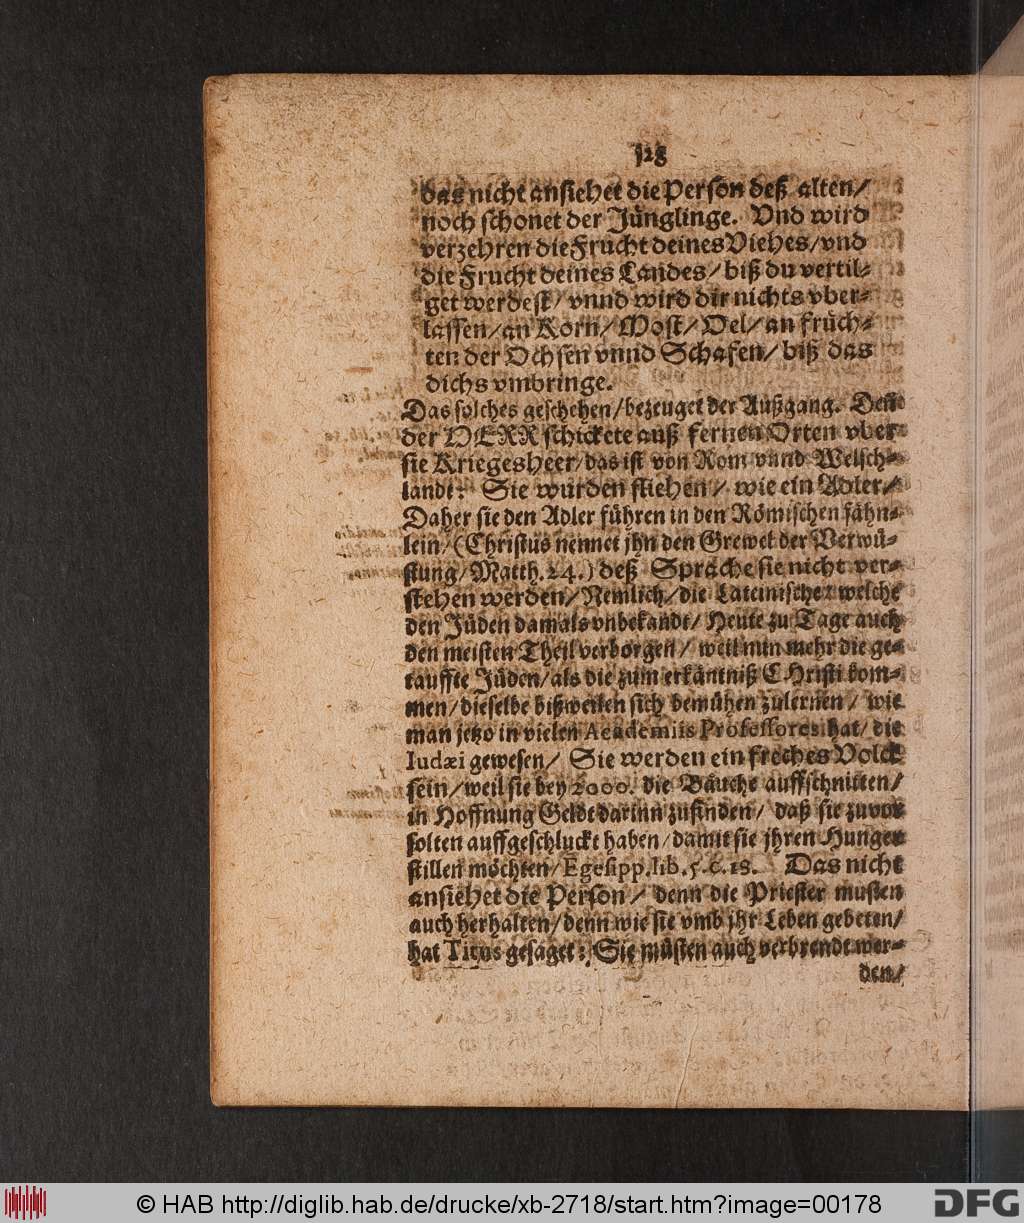 128
das nicht ansiehet die Person deß alten/
noch schonet der Jünglinge. Vnd wird
verzehren die Frucht deines Viehes/vnd
die Frucht deines Landes/biß du vertil-
get werdest/vnnd wird dir nichts vber-
lassen/an Korn/Most/Oel/an früch-
ten der Ochsen vnnd Schafen/biß das
dichs vmbringe.
Das solches geschehen/bezeuget der Außgang. Deñ
der HERR schickete auß fernen Orten vber
sie Kriegesheer/das ist von Rom vnnd Welsch-
landt: Sie wurden fliehen/wie ein Adler/
Daher sie den Adler führen in den Römischen fähn-
lein/(Christus nennet jhn den Grewel der Verwü-
stung/Matth.24.) deß Sprache sie nicht ver-
stehen werden/Nemlich/die Lateinische: welche
den Jüden damals vnbekandt/Heute zu Tage auch
den meisten Theil verborgen/weil nun mehr die ge-
tauffte Jüden/als die zum erkäntniß CHristi kom-
men/dieselbe bißweilen sich bemühen zulernen/wie
man jetzo in vielen Academiis Professores hat/die
Iudæi gewesen/ Sie werden ein freches Volck
sein/weil sie bey 2000. die Bäuche auffschnitten/
in Hoffnung Geldt darinn zufinden/daß sie zuvor
solten auffgeschluckt haben/damit sie jhren Hunger
stillen möchten/Egesipp.lib.5.c.18. Das nicht
ansiehet die Person/denn die Priester musten
auch herhalten/denn wie sie vmb jhr Leben gebeten/
hat Titus gesaget: Sie müsten auch verbrendt wer-
den/
© HAB http://diglib.hab.de/drucke/xb-2718/start.htm?image=00178
DFG